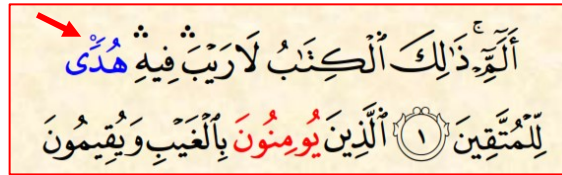 أَلَٓمِّٓۚ ذَٰلِكَ اَ۬لْكِتَٰبُ لَا رَيْبَۛ فِيهِۛ هُدٗى
لِّلْمُتَّقِينَ ١ اَ۬لذِينَ يُومِنُونَ بِالْغَيْبِ وَيُقِيمُونَ